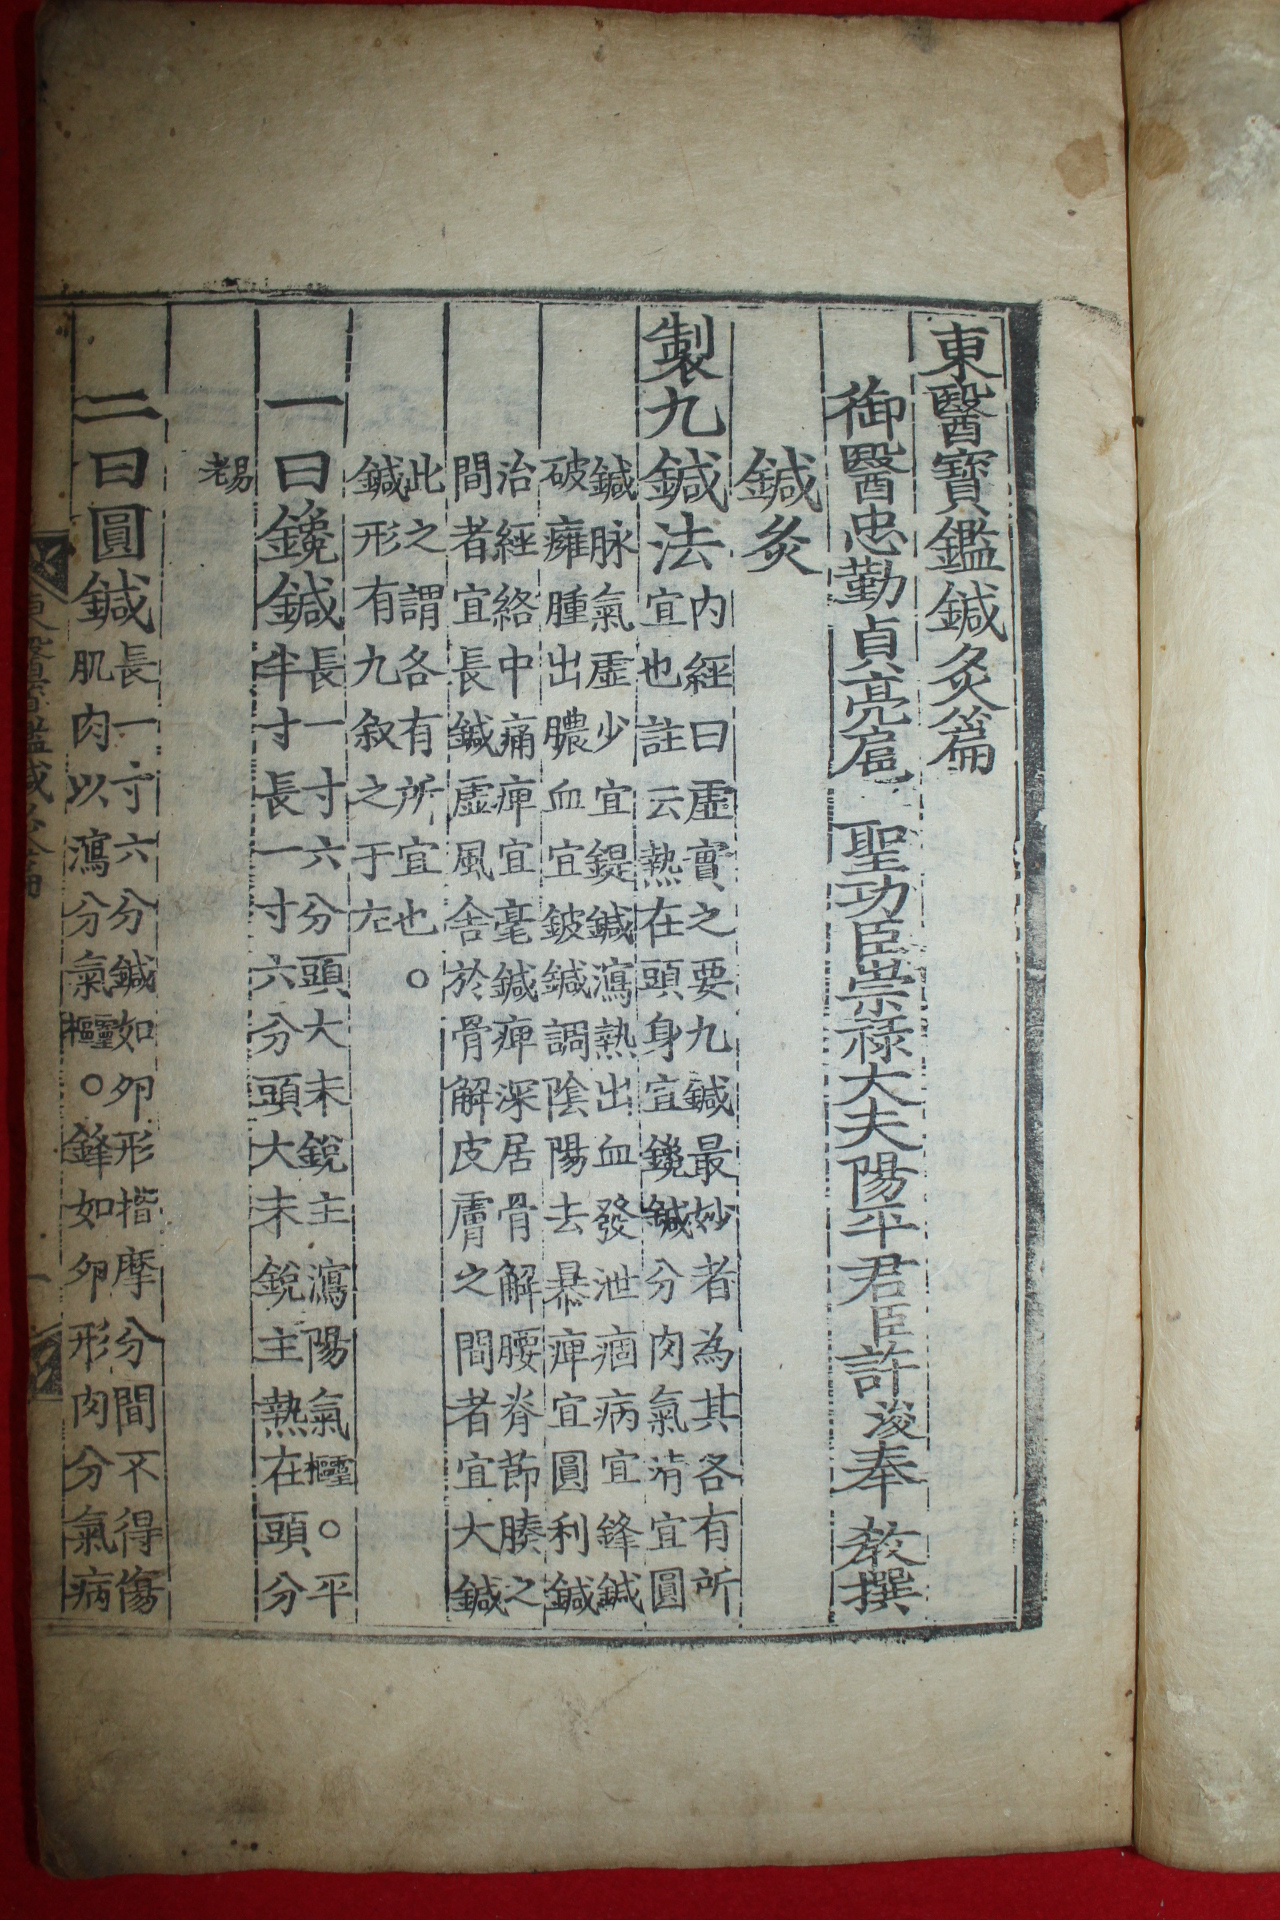 東醫寶鑑鍼灸篇
御醫忠勤貞亮扈 聖功臣崇祿大夫陽平君臣許浚奉 敎撰
鍼灸
製九鍼法 内經曰虛實之要九鍼最妙者為其各有所
宜也註云熱在頭身宜鑱鍼分肉氣淸宜圓
鍼脉氣虛少宜鍉鍼瀉熱出血發泄痼病宜鋒鍼
破癰腫出膿血宜鈹鍼調陰陽去暴痺宜圓利鍼
治經絡中痛痺宜毫鍼痺深居骨解腰脊節腠之
間者宜長鍼虛風舍於骨解皮膚之間者宜大鍼
此之謂各有所宜也○
鍼形有九叙之于左
一曰鑱鍼 長一寸六分頭大末銳主瀉陽氣靈樞○平
半寸長一寸六分頭大末銳主熱在頭分
易老
二曰圓鍼 長一寸六分鍼如卵形揩摩分間不得傷
肌肉以瀉分氣靈樞○鋒如卵形肉分氣病
東醫寶鑑鍼灸篇 一